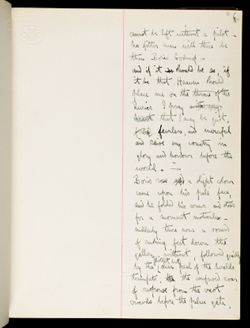 cannot be left without a pilot -
no fitter man will there be
than Boris Godunof -
and if it so should be so, if
it be that Heaven should
place me on the throne of the
I pray
that I may be just,
fearless, and merciful
and serve my country in
glory and honour before the
world. —
Boris a slight colour
came upon his pale face,
and he folded his arms and stood
for a moment motionless -
suddenly there was a sound
of rushing feet down the
gallery without, followed quickly
by the blast of the heralds
trumpets the
of response from the vast
crowds before the palace gate.